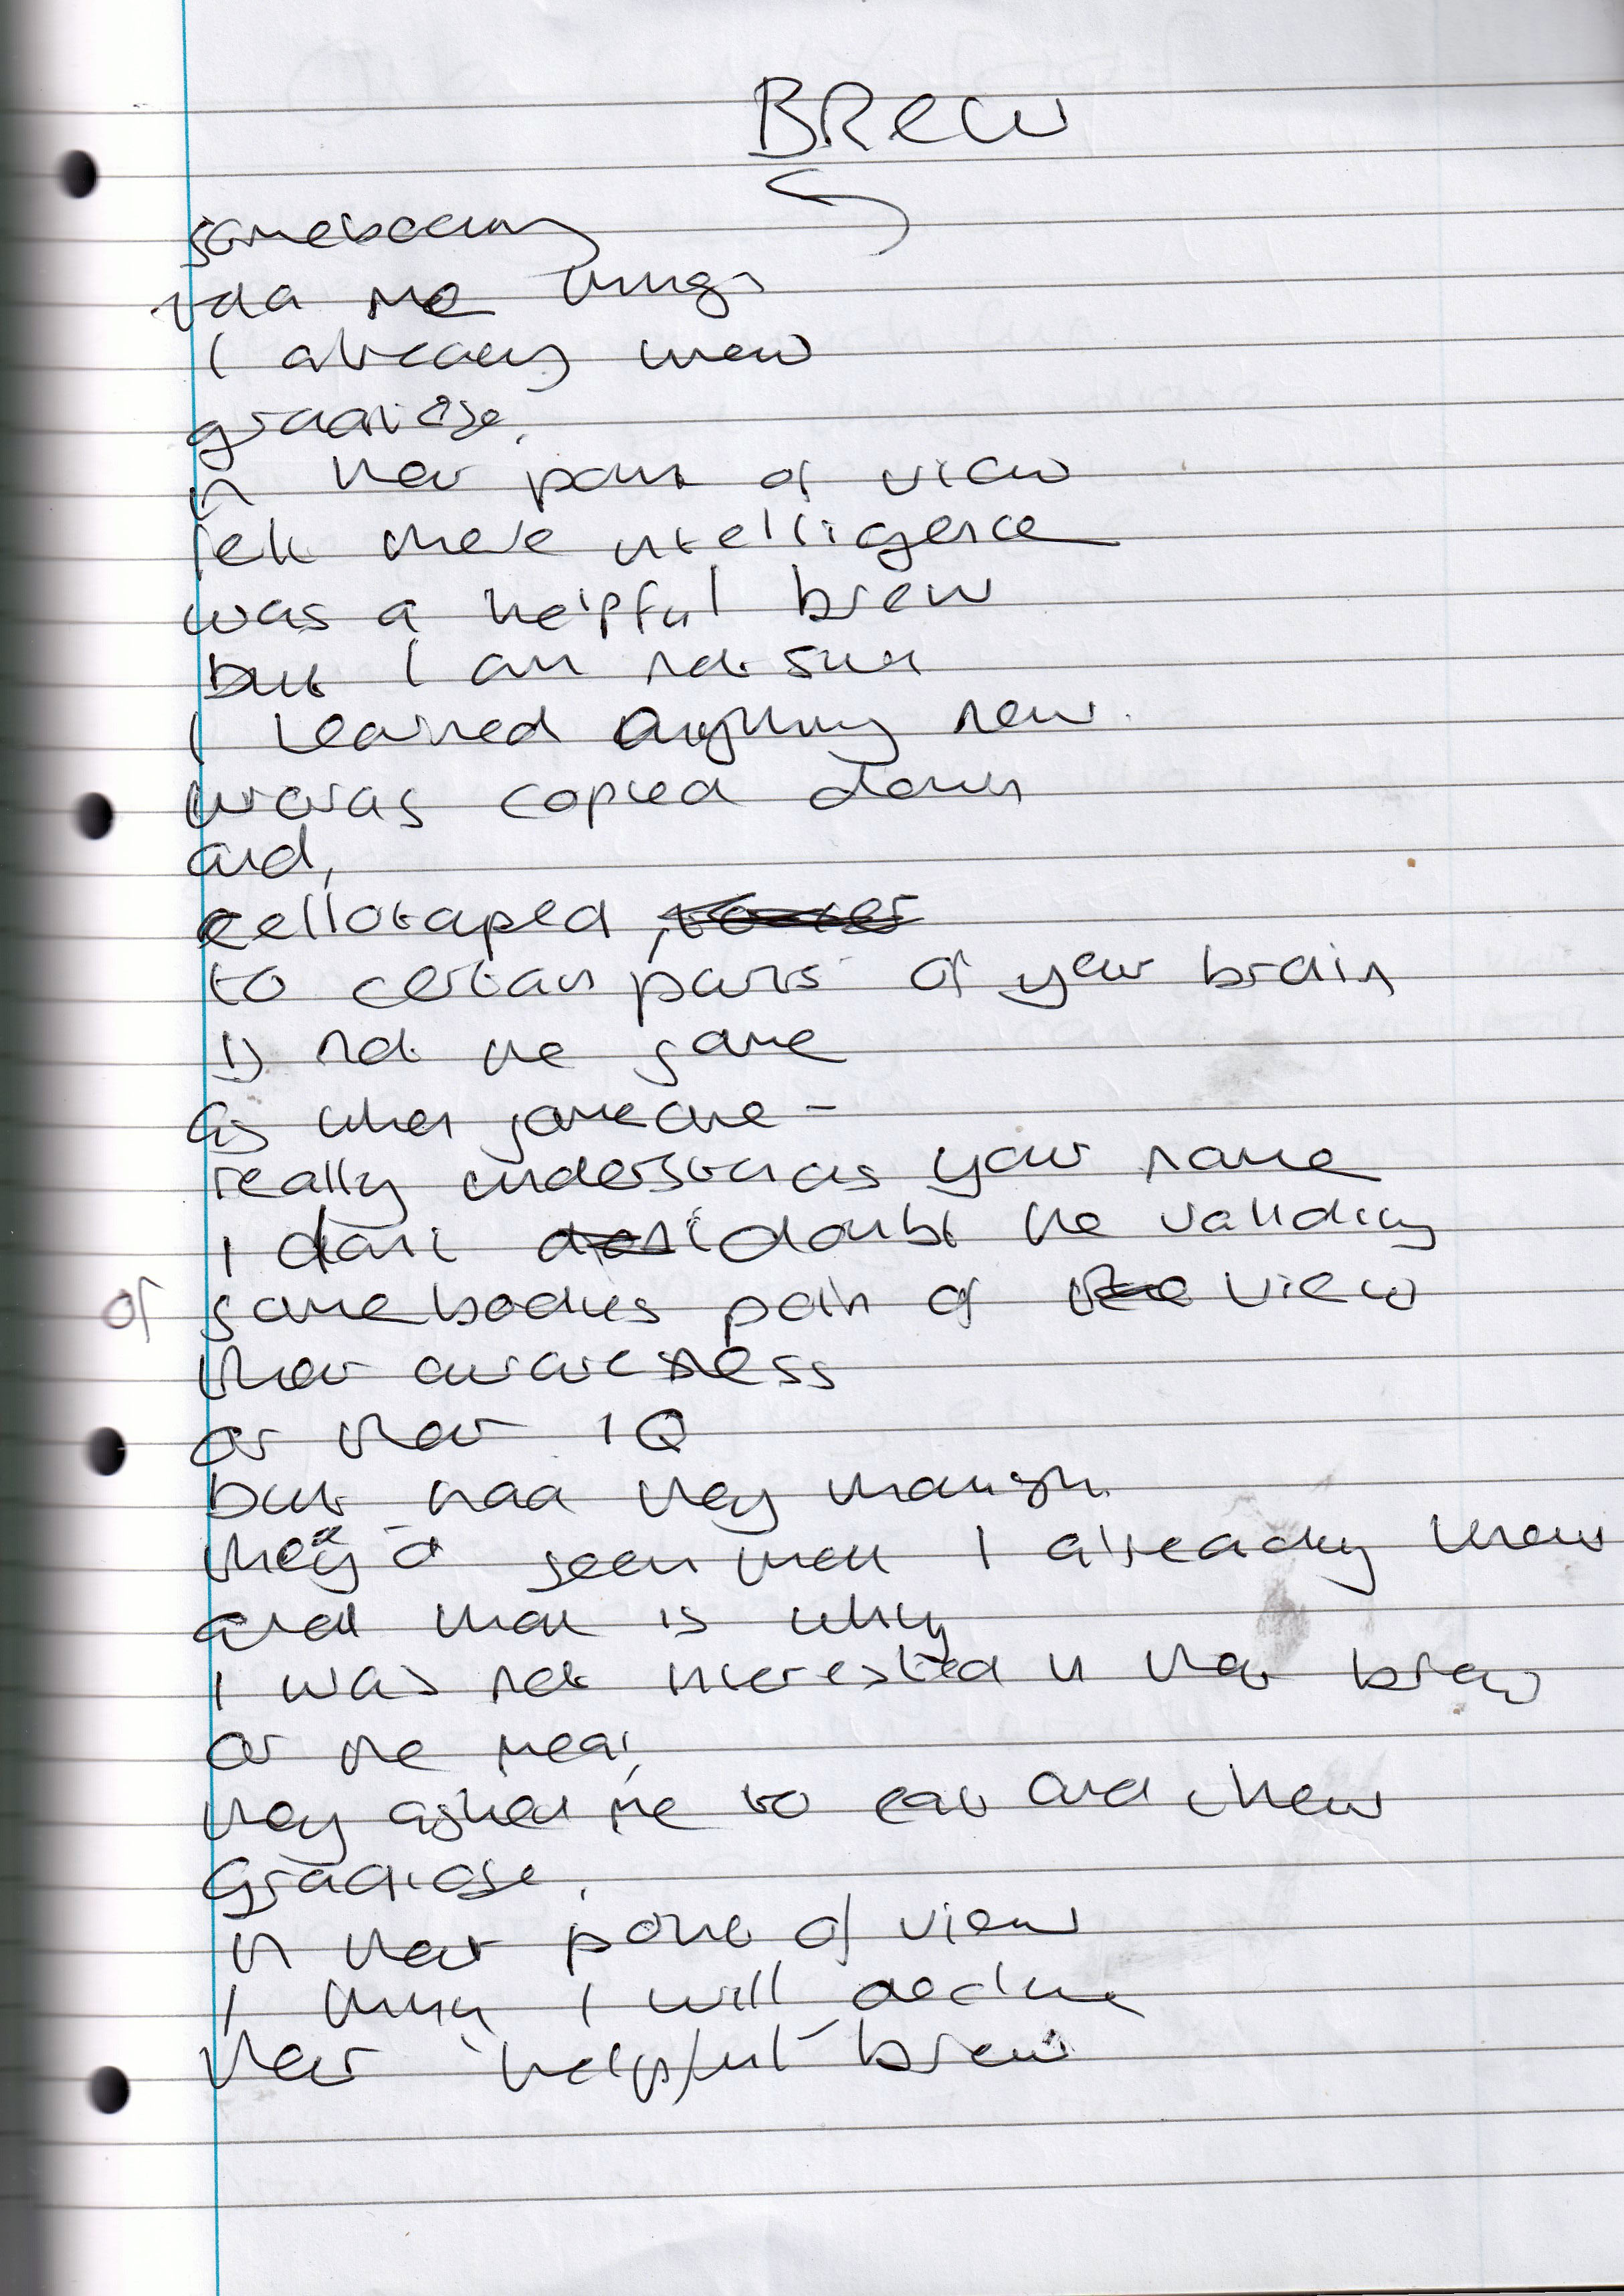 BREW
somebody
told me things
I already knew
gradiose,
in their point of view
felt there intelligence
was a helpful brew
but I am not sure
I learned anything new.
words copied down
and,
cellotaped,
to certain parts of your brain
is not the same
as when someone -
really understands your name
I don't doubt the validity
of somebodies point of view
their awareness
or their IQ
but had they thought
they'd seen what I already knew
and that is why
I was not interested in their brew
or the meal,
they asked me to eat and chew
Gradiose,
in their point of view
I think I will decline
their 'helpful' brew